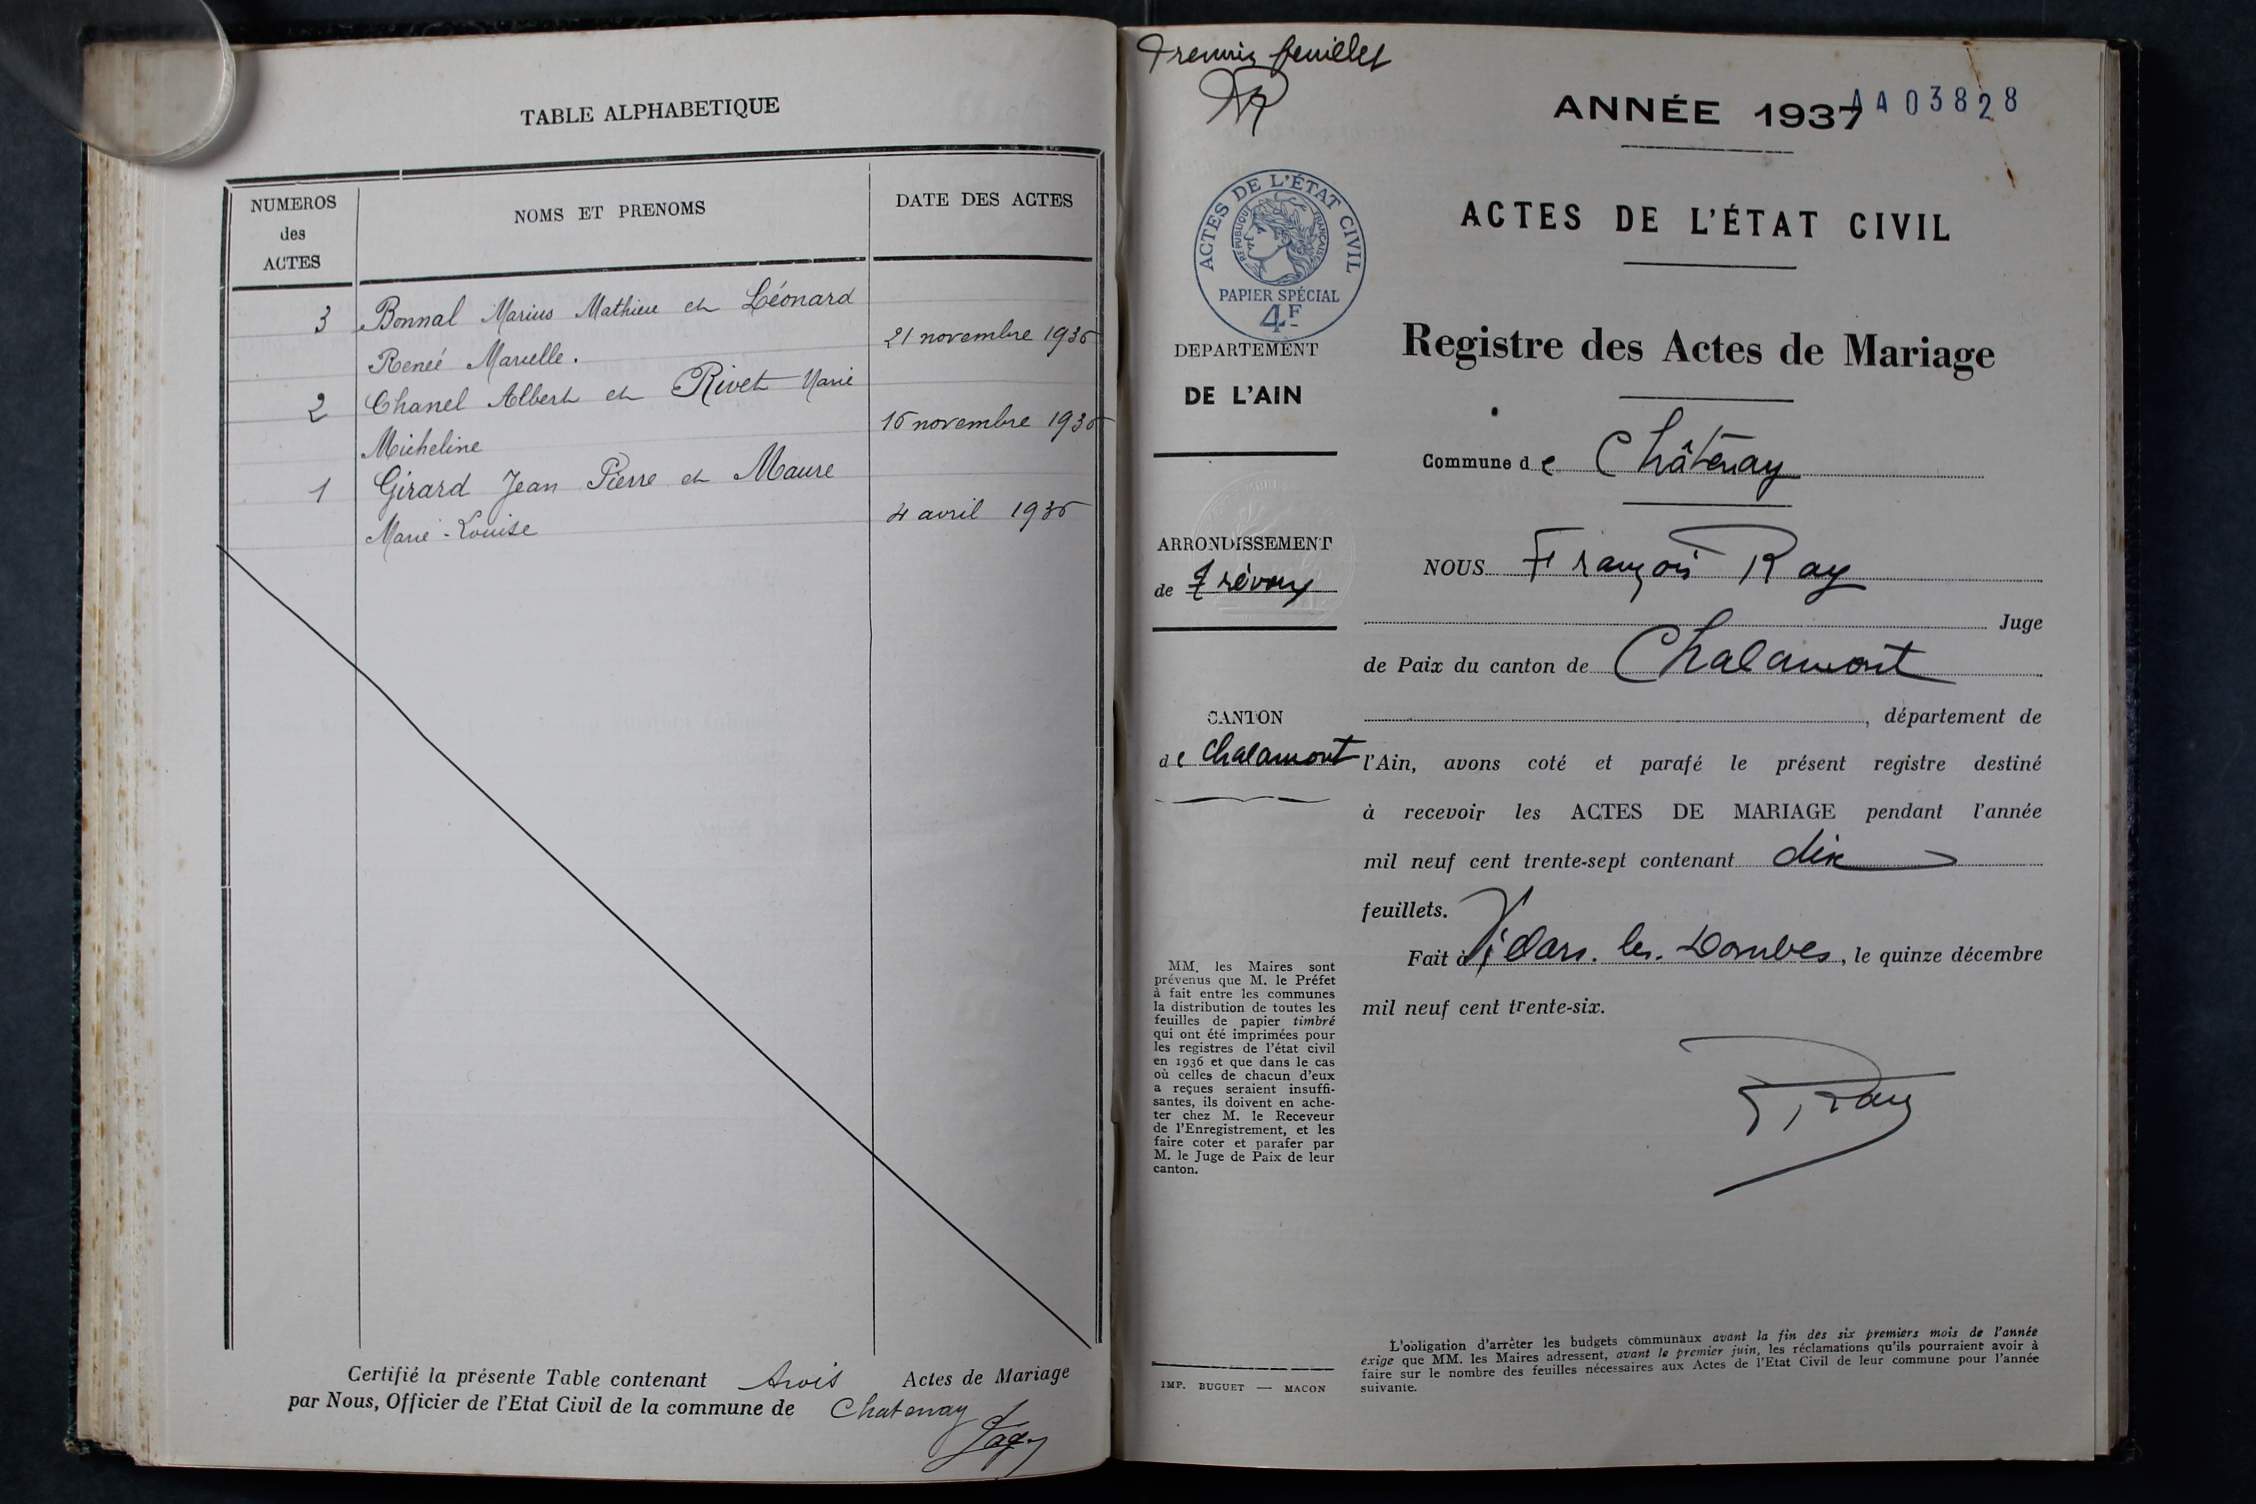 TABLE ALPHABETIQUE
NUMEROS
des
ACTES
NOMS ET PRENOMS
DATE DES ACTES
3 Bonnal Marius Mathieu et Léonard
Reneé Marcelle. 21 novembre 1936
2 Chanel Albert et Rivet Marie
Micheline 16 novembre 1936
1 Girard Jean Pierre et Maure
Marie-Louise 4 avril 1936
Certifié la présente Table contenant trois Actes de Mariage
par Nous, Officier de l'Etat Civil de la commune de Chatenay
Premier feuillet
ANNÉE 1937
AA03828
ACTES DE L'ÉTAT CIVIL
RÉPUBLIQUE FRANÇAISE
PAPIER SPÉCIAL
4F
ACTES DE L'ÉTAT CIVIL
Registre des Actes de Mariage
DEPARTEMENT
DE L'AIN
Commune de Châtenay
ARRONDISSEMENT
de Trévoux
CANTON
de Chalamont
MM. les Maires sont
prévenus que M. le Préfet
à fait entre les communes
la distribution de toutes les
feuilles de papier timbré
qui ont été imprimées pour
les registres de l'état civil
en 1936 et que dans le cas
où celles de chacun d'eux
a reçues seraient insuffi-
santes, ils doivent en ache-
ter chez M. le Receveur
de l'Enregistrement, et les
faire coter et parafer par
M. le Juge de Paix de leur
canton.
IMP. BUGUET — MACON
NOUS François Ray
Juge
de Paix du canton de Chalamont
, département de
l'Ain, avons coté et parafé le présent registre destiné
à recevoir les ACTES DE MARIAGE pendant l'année
mil neuf cent trente-sept contenant dix
feuillets.
Fait à Villars. les. Dombes, le quinze décembre
mil neuf cent trente-six.
Ray
L'obligation d'arrêter les budgets communaux avant la fin des six premiers mois de l'année
exige que MM. les Maires adressent, avant le premier juin, les réclamations qu'ils pourraient avoir à
faire sur le nombre des feuilles nécessaires aux Actes de l'Etat Civil de leur commune pour l'année
suivante.